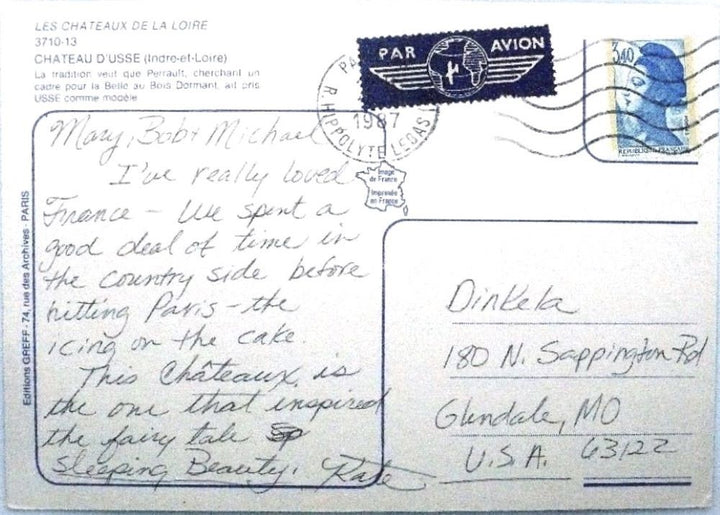 LES CHATEAUX DE LA LOIRE
3710-13
CHATEAU D'USSE (Indre-et-Loire)
La tradition veut que Perrault, cherchant un
cadre pour la Belle au Bois Dormant, ait pris
USSE comme modèle
PAR AVION
PA
1987
R. HIPPOLYTE LEBAS
3,40
REPUBLIQUE FRANÇAISE
Image
de France
Imprimée
en France
Editions GREFF - 74, rue des Archives - PARIS
Mary, Bob & Michael
I've really loved
France - We spent a
good deal of time in
the country side before
hitting Paris - the
icing on the cake.
This Châteaux is
the one that inspired
the fairy tale
Sleeping Beauty. Kate
Dinkela
180 N. Sappington Rd
Glendale, MO
U.S.A. 63122